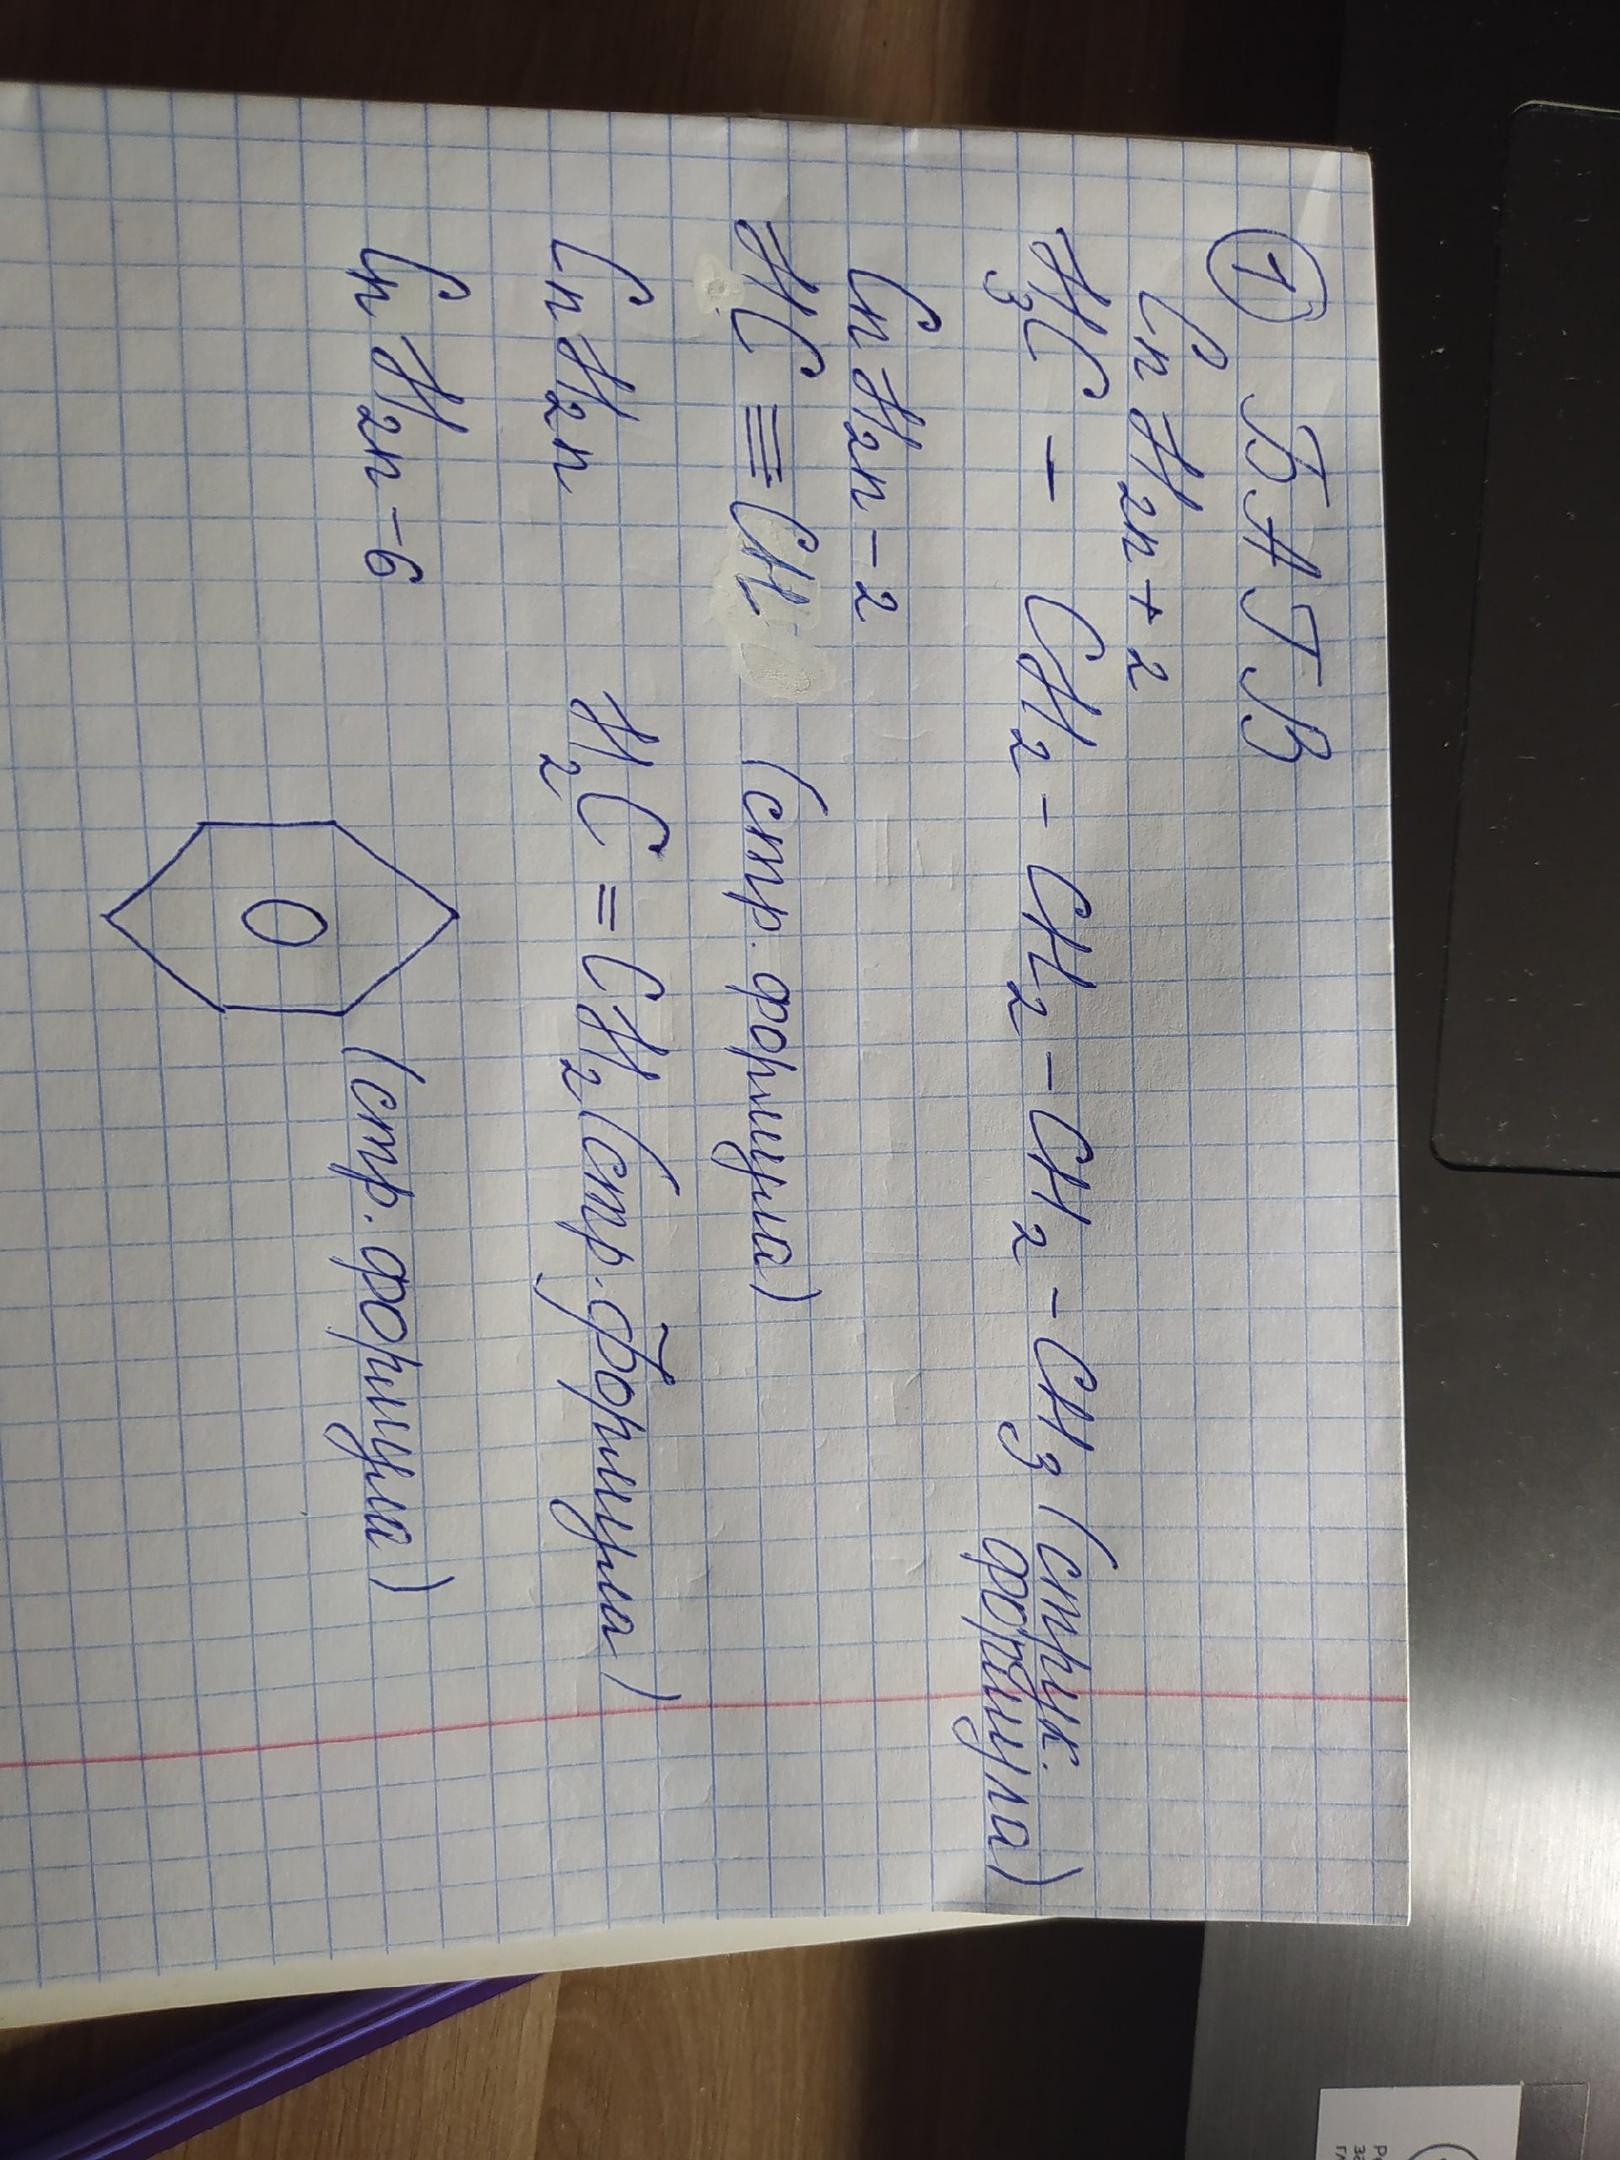 1 БАГВ
CnH2n+2
H3C - CH2 - CH2 - CH2 - CH3 (струк. формула)
CnH2n-2
HC ≡ CH (стр. формула)
CnH2n H2C = CH2 (стр. формула)
CnH2n-6 (стр. формула)